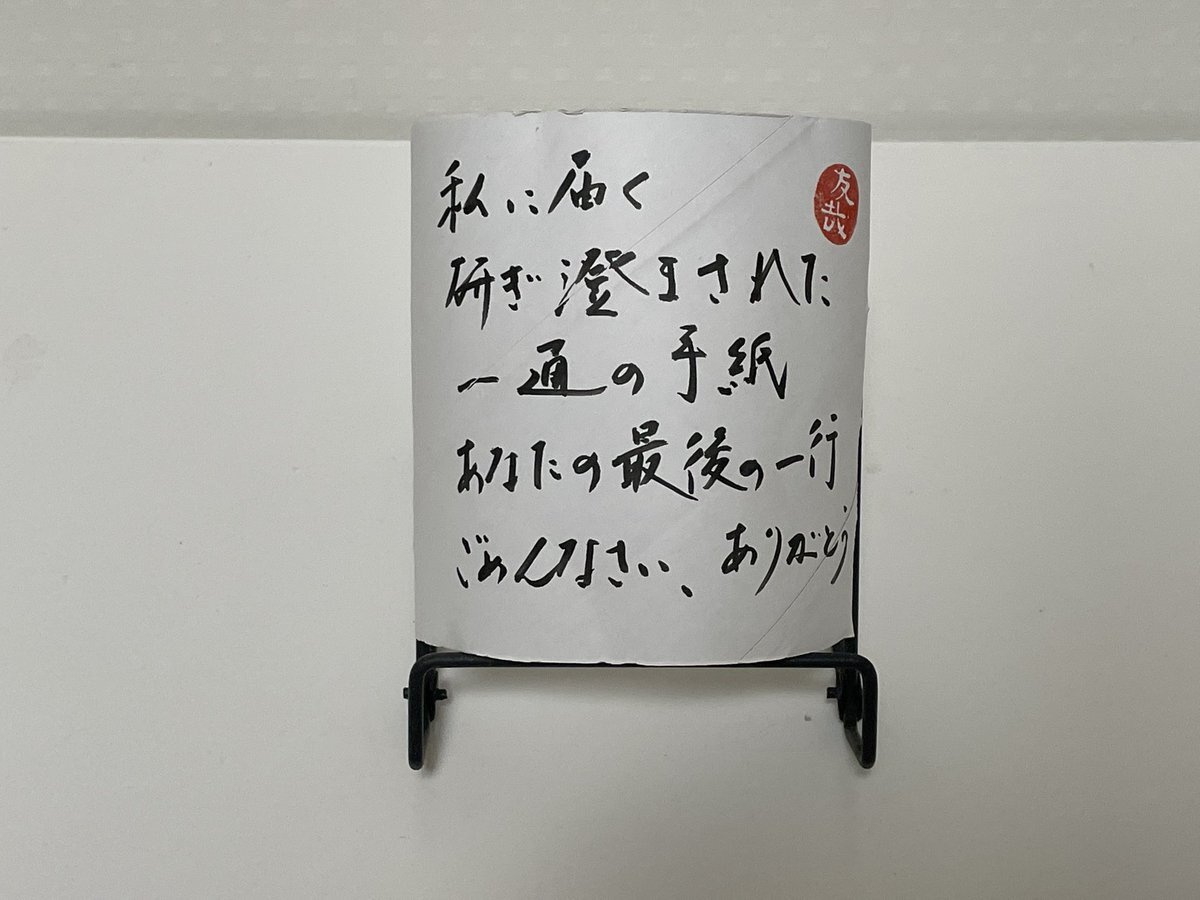 私に届く
研ぎ澄まされた
一通の手紙
あなたの最後の一行
ごめんなさい、ありがとう
友哉